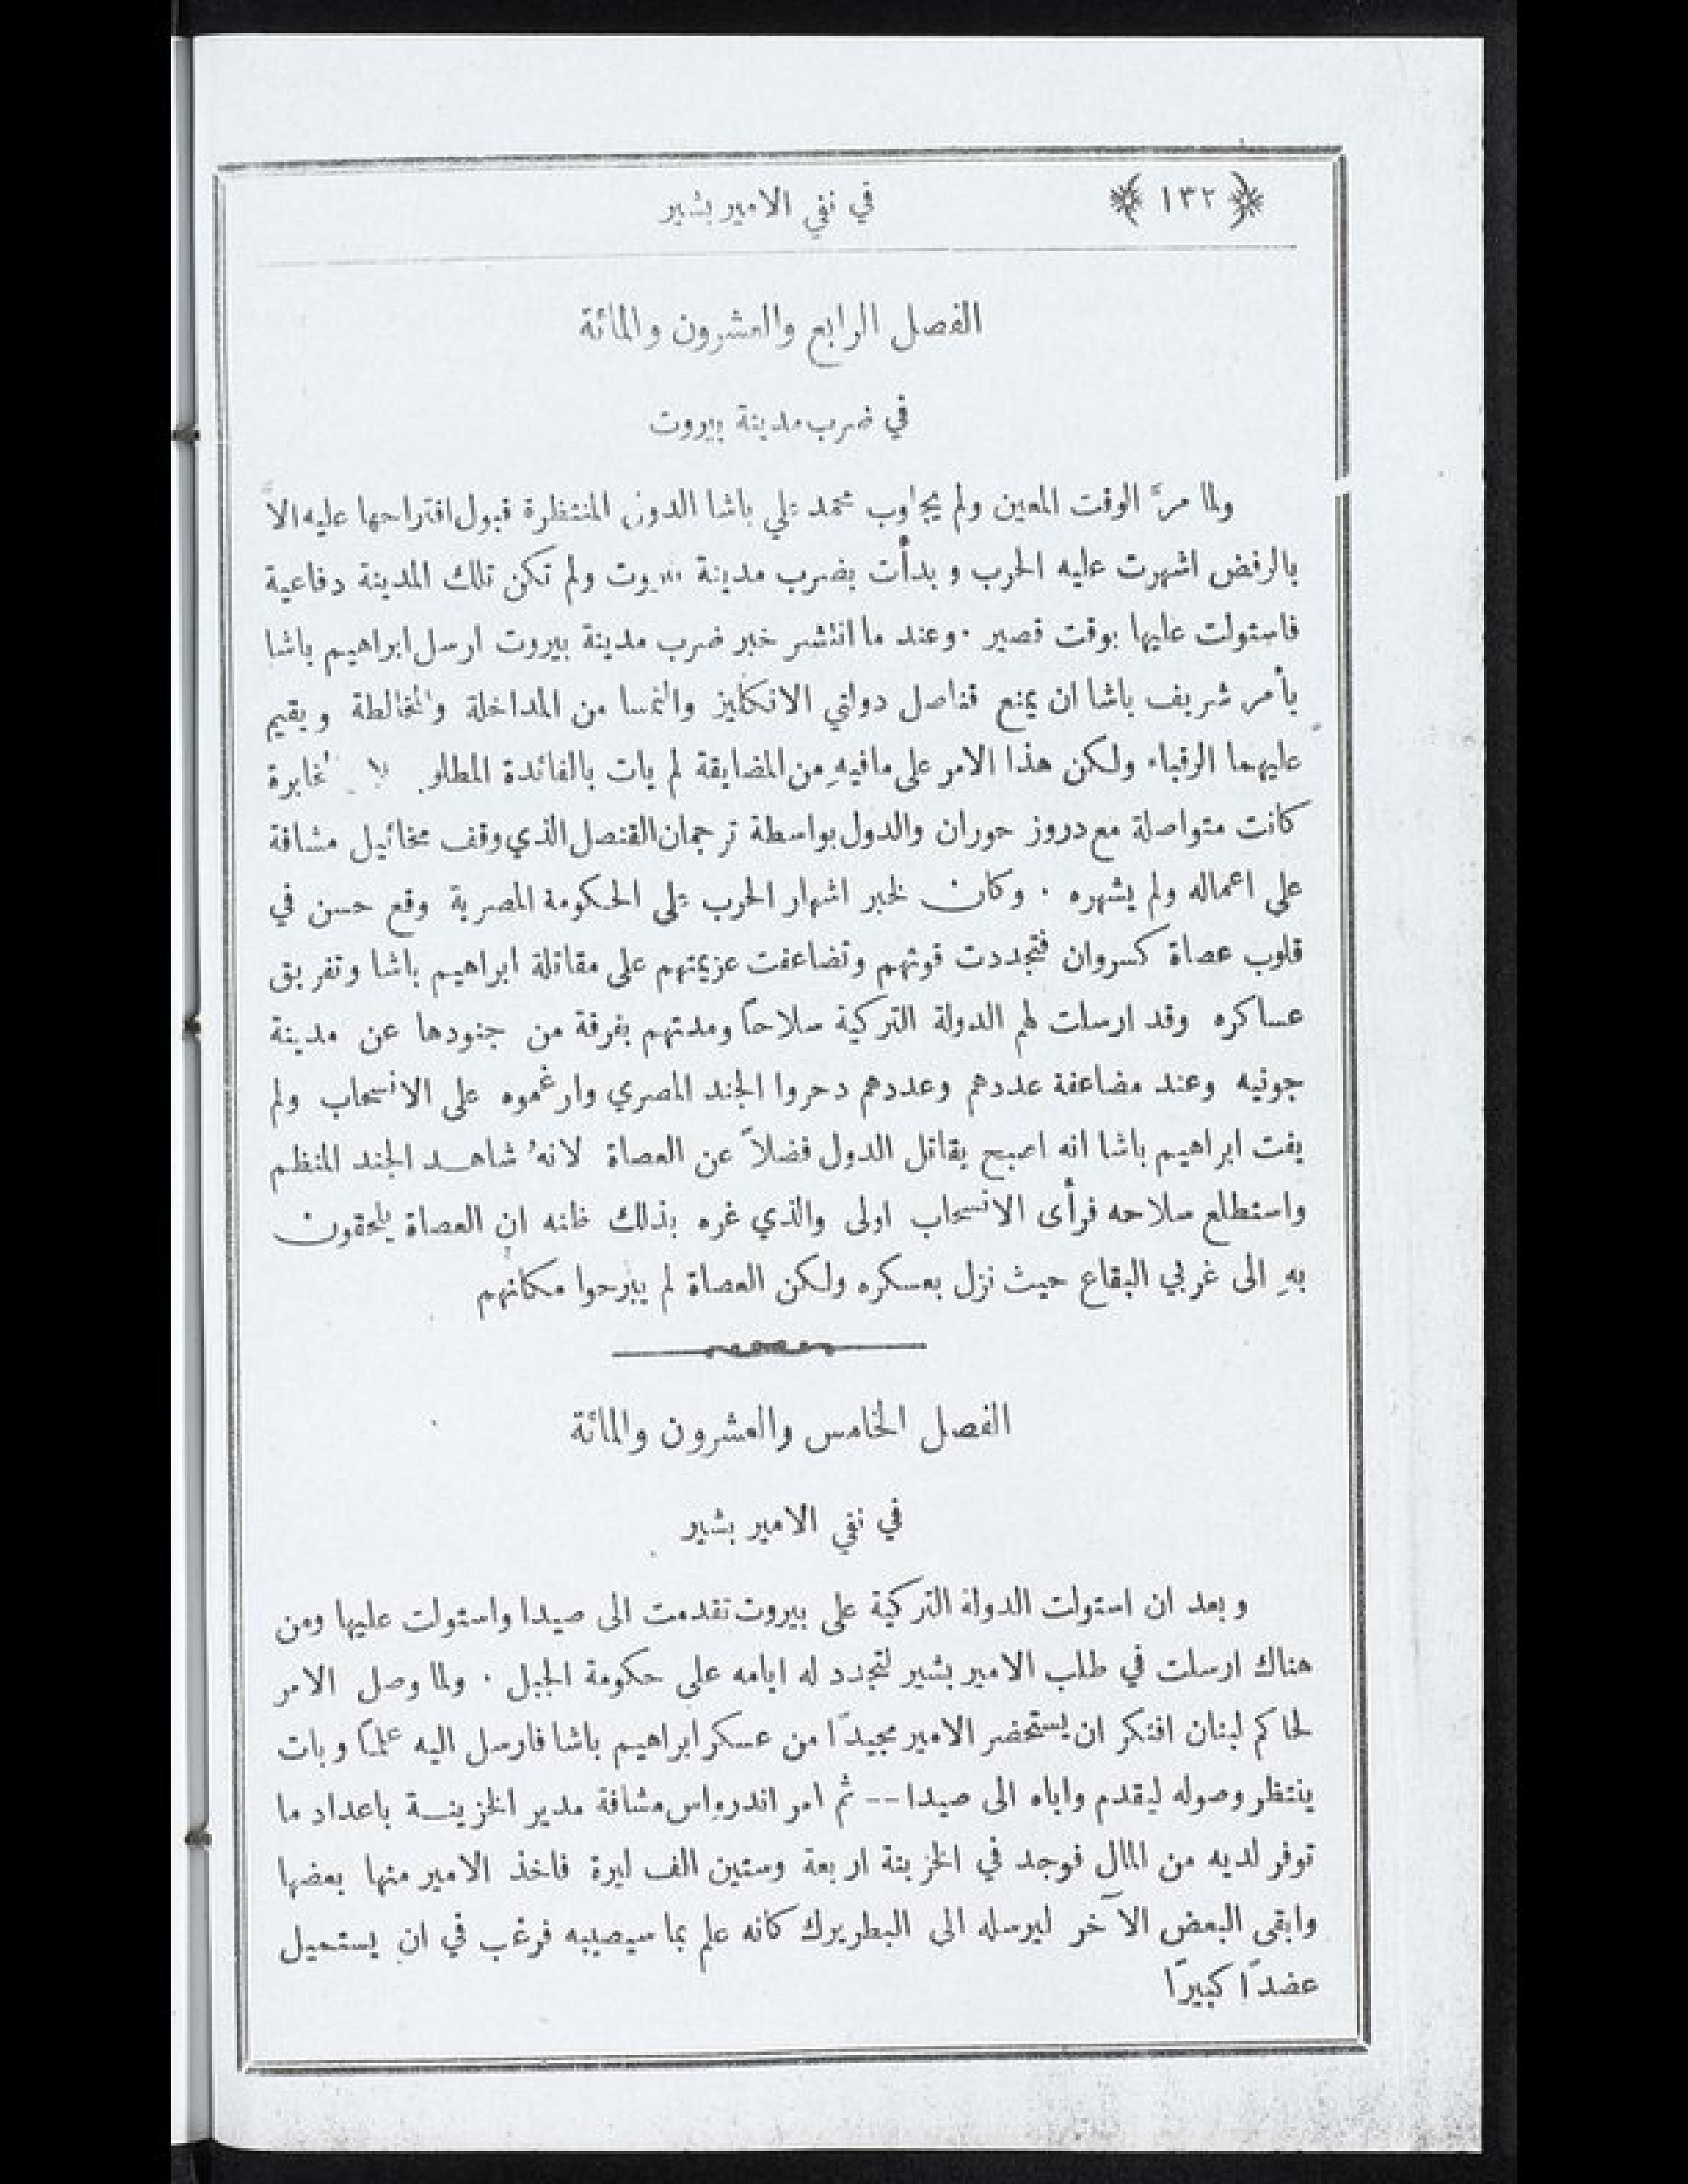 ﴿ ١٣٢ ﴾ في نفي الامير بشير
الفصل الرابع والعشرون والمائة
في ضرب مدينة بيروت
ولما مرَّ الوقت المعين ولم يجاوب محمد علي باشا الدول المنتظرة قبول اقتراحها عليه الاَّ
بالرفض اشهرت عليه الحرب وبدأت بضرب مدينة بيروت ولم تكن تلك المدينة دفاعية
فاستولت عليها بوقت قصير ٠ وعند ما انتشر خبر ضرب مدينة بيروت ارسل ابراهيم باشا
بأمر شريف باشا ان يمنع قناصل دولتي الانكليز والنمسا من المداخلة والمخالطة ويقيم
عليهما الرقباء ولكن هذا الامر على مافيهِ من المضايقة لم يات بالفائدة
كانت متواصلة مع دروز حوران والدول بواسطة ترجمان القنصل الذي وقف مخائيل مشاقة
على اعماله ولم يشهره ٠ وكان لخبر اشهار الحرب على الحكومة المصرية وقع حسن في
قلوب عصاة كسروان فتجددت قوتهم وتضاعفت عزيمتهم على مقاتلة ابراهيم باشا وتفريق
عساكره وقد ارسلت لهم الدولة التركية سلاحًا ومدتهم بفرقة من جنودها عن مدينة
جونيه وعند مضاعفة عددهم وعددهم دحروا الجند المصري وارغموه على الانسحاب ولم
يفت ابراهيم باشا انه اصبح يقاتل الدول فضلاً عن العصاة لانهُ شاهد الجند المنظم
واستطلع سلاحه فرأى الانسحاب اولى والذي غره بذلك ظنه ان العصاة يلحقون
بهِ الى غربي البقاع حيث نزل بعسكره ولكن العصاة لم يبرحوا مكانهم
الفصل الخامس والعشرون والمائة
في نفي الامير بشير
وبعد ان استولت الدولة التركية على بيروت تقدمت الى صيدا واستولت عليها ومن
هناك ارسلت في طلب الامير بشير لتجدد له ايامه على حكومة الجبل ٠ ولما وصل الامر
لحاكم لبنان افتكر ان يستحضر الامير مجيدًا من عسكر ابراهيم باشا فارسل اليه علمًا وبات
ينتظر وصوله ليقدم واياه الى صيدا -- ثم امر اندرواس مشاقة مدير الخزينة باعداد ما
توفر لديه من المال فوجد في الخزينة اربعة وستين الف ليرة فاخذ الامير منها بعضها
وابقى البعض الآخر ليرسله الى البطريرك كانه علم بما سيصيبه فرغب في ان يستميل
عضدًا كبيرًا